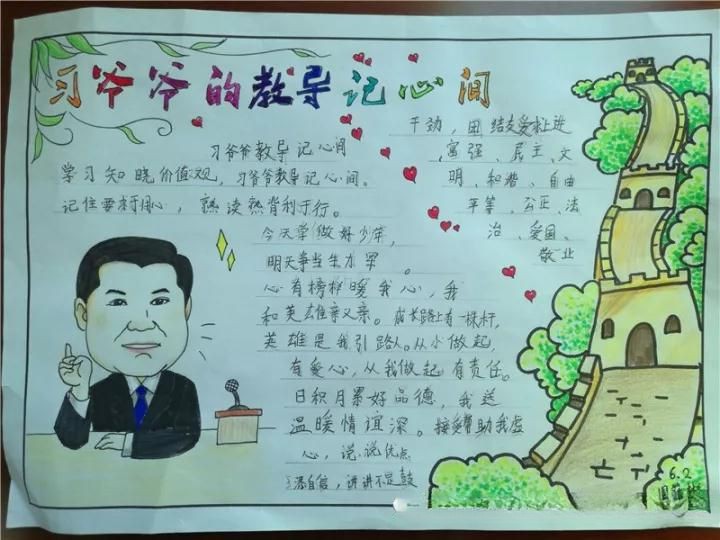 习爷爷的教导记心间
习爷爷教导记心间
学习知晓价值观，习爷爷教导记心间。
记住要利用心，熟读熟背利于行。
今天学做好少年，
明天争当生力军。
心有榜样暖我心，我
和英雄亲又亲。成长路上有一株杆，
英雄是我引路人。从小做起，
有爱心，从我做起有责任。
日积月累好品德，我送
温暖情谊深。接受帮助我虚
心，说说优点
添自信，讲讲不足鼓
干劲，团结友爱求上进
富强、民主、文
明、和谐、自由
平等、公正、法
治、爱国、
敬业
6.2